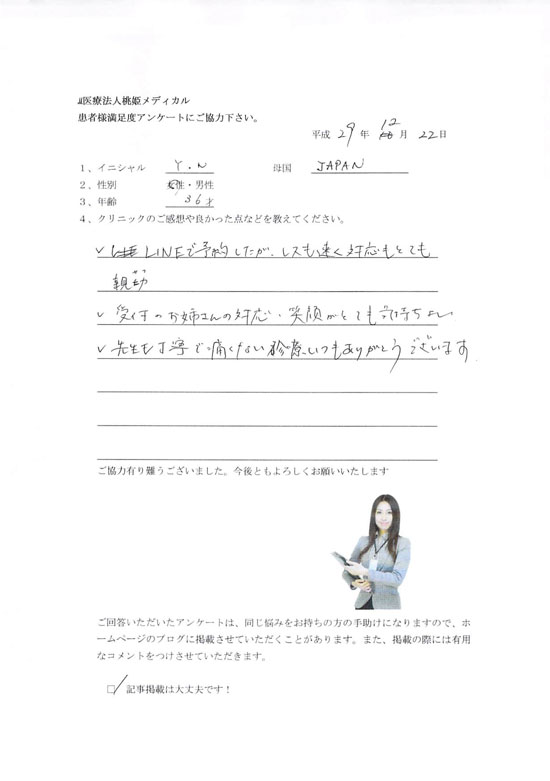 医療法人桃姫メディカル
患者様満足度アンケートにご協力下さい。
平成 29 年 12 月 22 日
1、イニシャル Y.N 母国 JAPAN
2、性別 女性・男性
3、年齢 36才
4、クリニックのご感想や良かった点などを教えてください。
✓ LINEで予約したが、レスも速く対応もとても
親切
✓ 受付のお姉さんの対応・笑顔がとても気持ちよい
✓ 先生も丁寧で痛くない診療、いつもありがとうございます
ご協力有り難うございました。今後ともよろしくお願いいたします
ご回答いただいたアンケートは、同じ悩みをお持ちの方の手助けになりますので、ホ
ームページのブログに掲載させていただくことがあります。また、掲載の際には有用
なコメントをつけさせていただきます。
□ 記事掲載は大丈夫です！